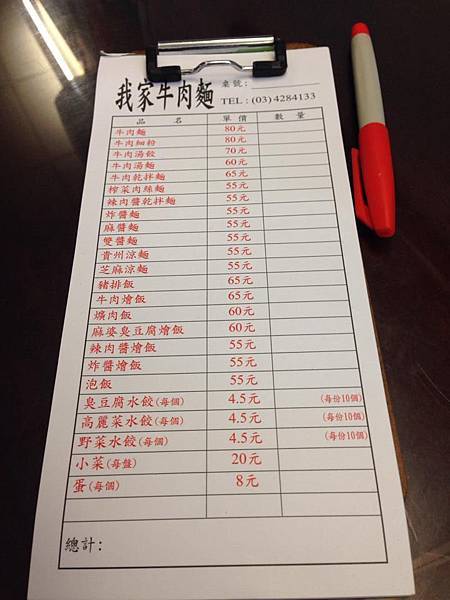 我家牛肉麵 桌號:
TEL:(03)4284133
品 名 單價 數量
牛肉麵 80元
牛肉細粉 80元
牛肉湯餃 70元
牛肉湯麵 60元
牛肉乾拌麵 65元
榨菜肉絲麵 55元
辣肉醬乾拌麵 55元
炸醬麵 55元
麻醬麵 55元
雙醬麵 55元
貴州涼麵 55元
芝麻涼麵 55元
豬排飯 65元
牛肉燴飯 65元
爌肉飯 60元
麻婆臭豆腐燴飯 60元
辣肉醬燴飯 55元
炸醬燴飯 55元
泡飯 55元
臭豆腐水餃(每個) 4.5元 (每份10個)
高麗菜水餃(每個) 4.5元 (每份10個)
野菜水餃(每個) 4.5元 (每份10個)
小菜(每盤) 20元
蛋(每個) 8元
總計: